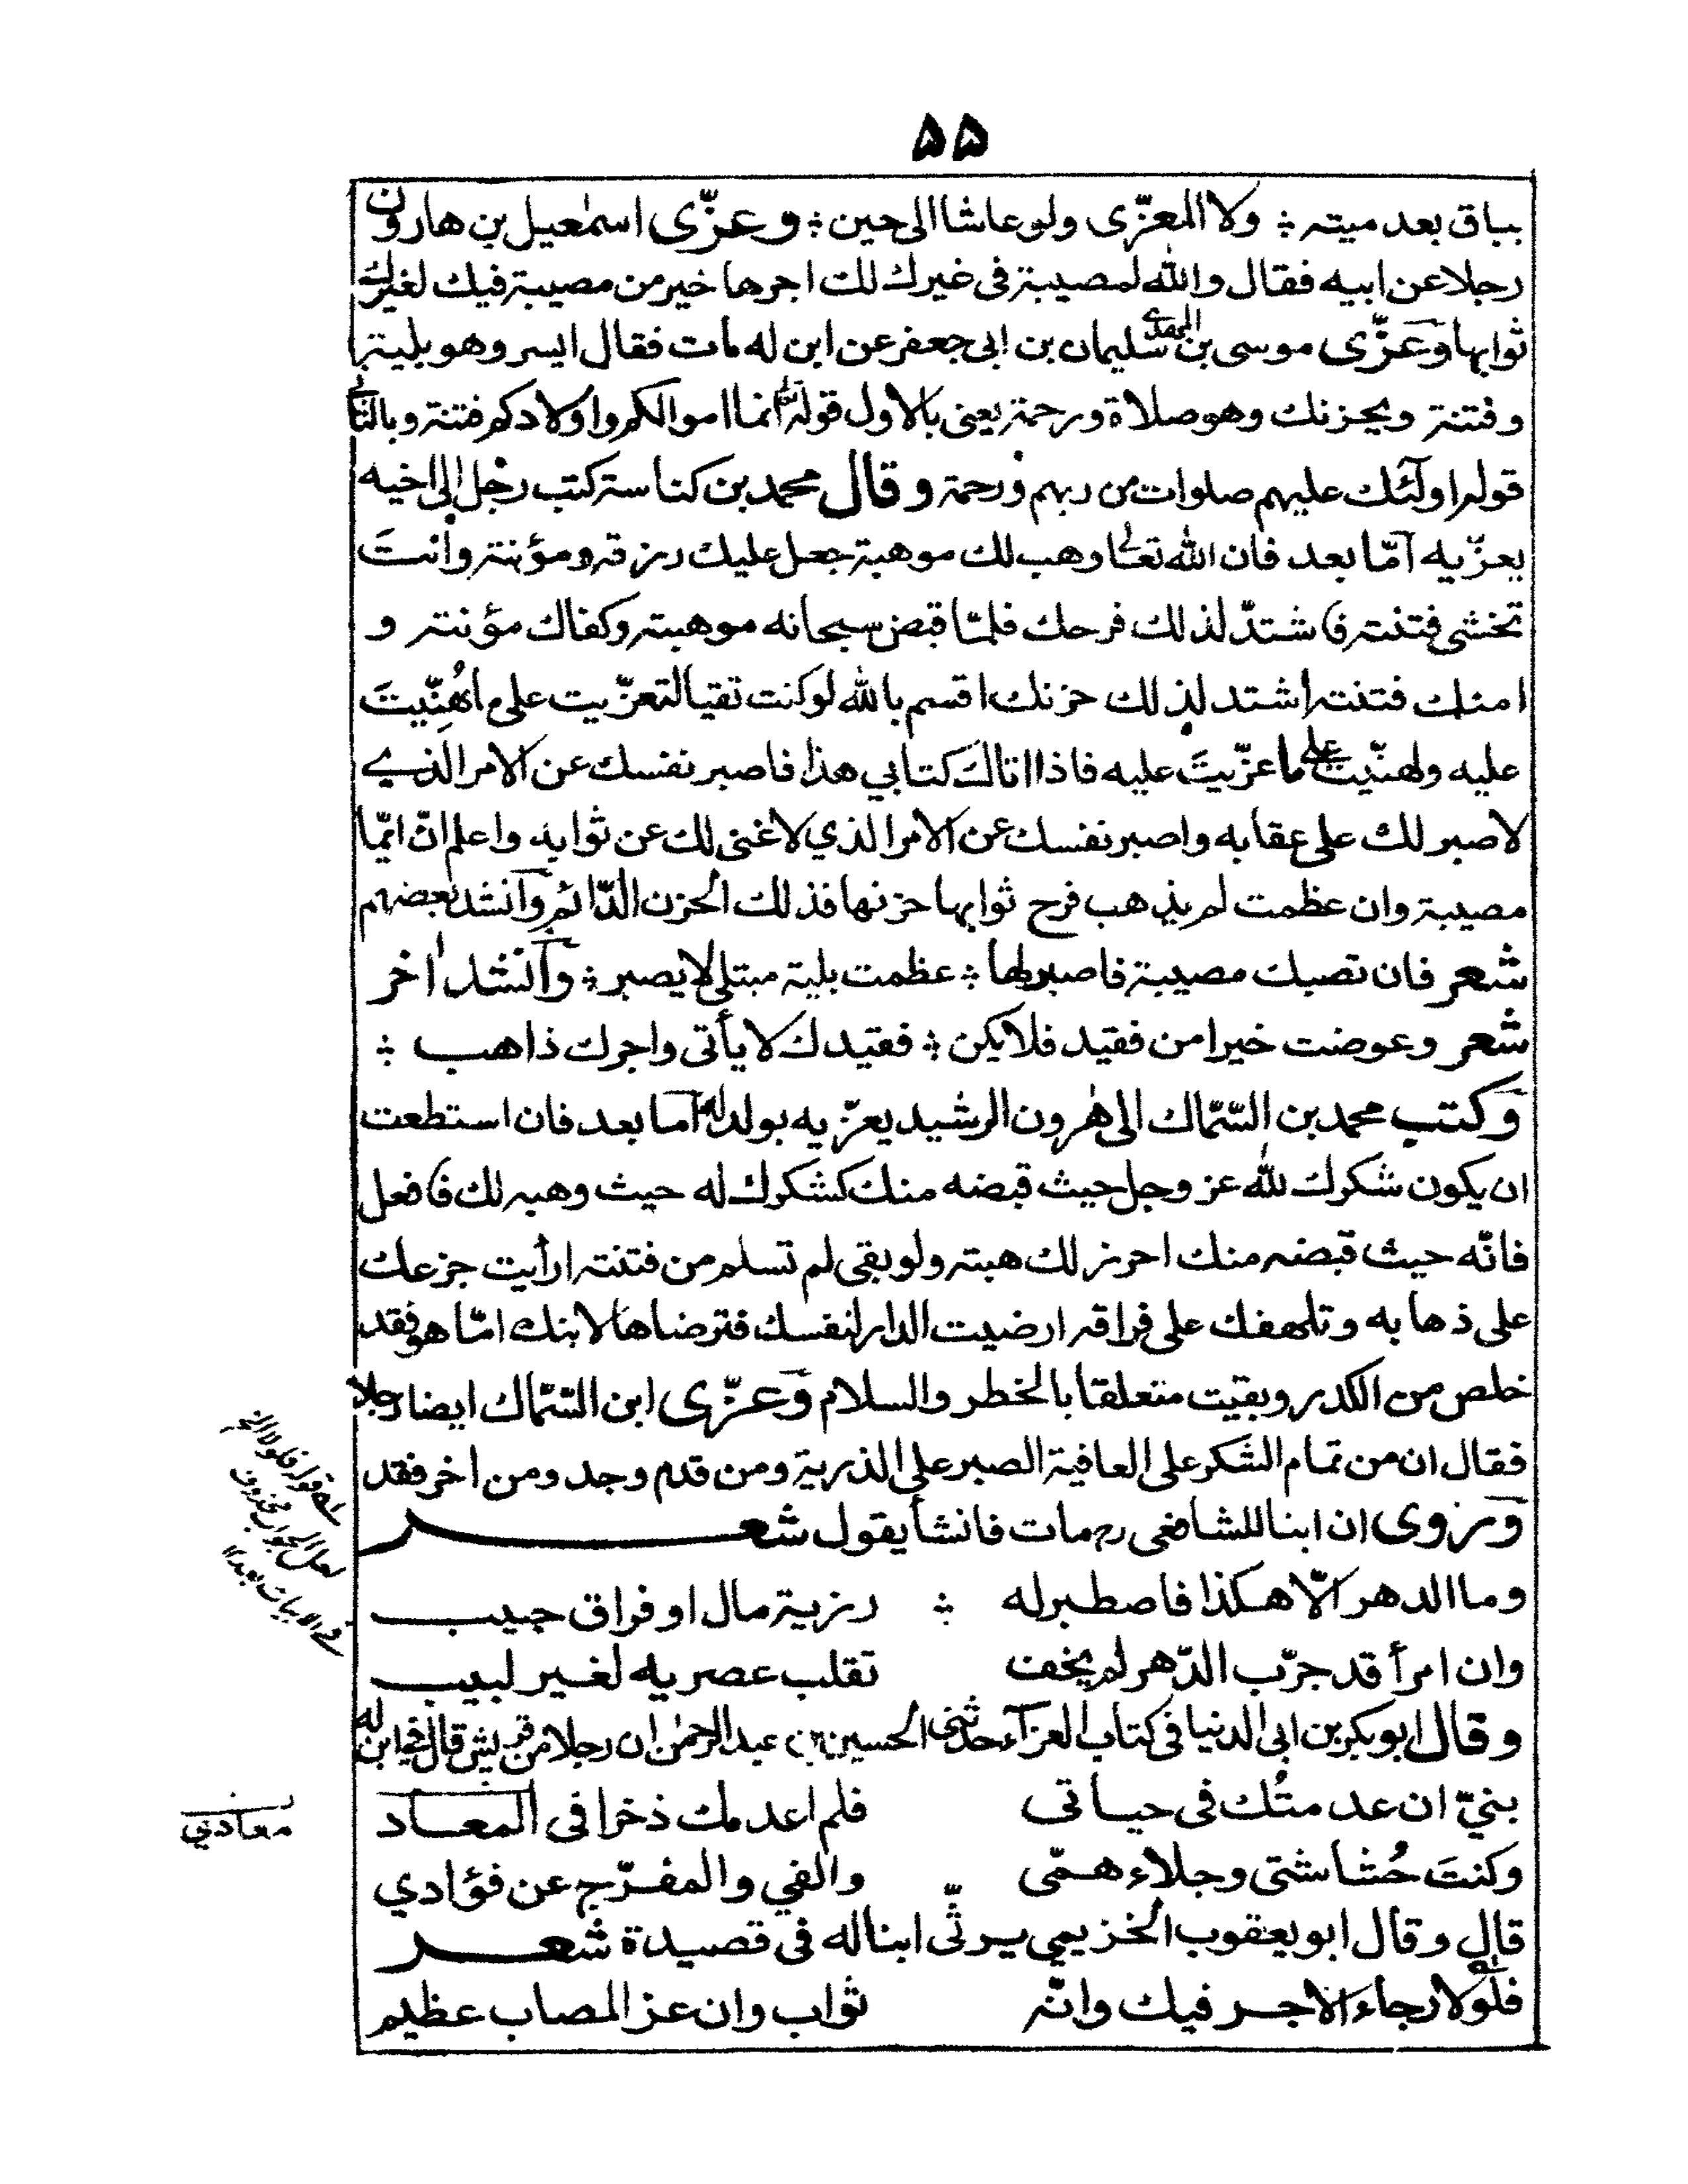 ۵۵
بباق بعد ميته ؞ ولا المعزّى ولو عاشا الى حين ؞ وعزّى اسمٰعيل بن هارون
رجلا عن ابيه فقال والله لمصيبة فى غيرك لك اجرها خير من مصيبة فيك لغيرك
ثوابها وَعَزّى موسى بن المهدي سليمان بن ابى جعفر عن ابن له مات فقال ايسر وهو بلية
وفتنة ويحزنك وهو صلاة ورحمة يعنى بالاول قوله تعالى انما اموالكم واولادكم فتنة وبالثانى
قوله اولٓئك عليهم صلوات من ربهم ورحمة وقال محمد بن كناسة كتب رجل الى اخيه
يعزّيه امّا بعد فان الله تعالى وهب لك موهبة جعل عليك رزقه ومؤنته وانتَ
تخشى فتنته فاشتدّ لذلك فرحك فلمّا قبض سبحانه موهبته وكفاك مؤنته و
امنك فتنته اشتد لذلك حزنك اقسم بالله لو كنت تقيا لتعزّيت على ما هُنِّيتَ
عليه ولهنّيت على ما عزّيتَ عليه فاذا اتاكَ كتابي هذا فاصبر نفسك عن الامر الذي
لا صبر لك على عقابه واصبر نفسك عن الامر الذي لا غنى لك عن ثوابه واعلم انّ ايّما
مصيبة وان عظمت لم يذهب فرح ثوابها حزنها فذلك الحزن الدّائم وَانشد بعضهم
شعر فان تصبك مصيبة فاصبر لها ؞ عظمت بلية مبتلى لا يصبر ؞ وَانشد اخر
شعر وعوضت خيرا من فقيد فلا يكن ؞ فقيدك لا يأتى واجرك ذاهب ؞
وَكتب محمد بن السّمّاك الى هٰرون الرشيد يعزّيه بولد له اما بعد فان استطعت
ان يكون شكرك لله عز وجل حيث قبضه منك كشكرك له حيث وهبه لك فافعل
فانّه حيث قبضه منك احرز لك هبته ولو بقى لم تسلم من فتنته ارأيت جزعك
على ذهابه وتلهفك على فراقه ارضيت الدار لنفسك فترضاها لابنك امّا هو فقد
خلص من الكدر وبقيت متعلقا بالخطر والسلام وَعزّى ابن السّمّاك ايضا رجلا
فقال ان من تمام الشكر على العافية الصبر على الذرية ومن قدم وجد ومن اخر فقد
وَروى ان ابنا للشافعى رح مات فانشأ يقول شعر
وما الدهر الّا هكذا فاصطبر له ؞ رزية مال او فراق حبيب
وان امرأ قد جرّب الدّهر لم يخف تقلب عصريه لغير لبيب
وقال ابو بكر بن ابى الدنيا فى كتاب العزآء حدثنى الحسين بن عبد الرحمٰن ان رجلا من قريش قال فى ابن له
بنيّ ان عدمتُك فى حياتى فلم اعدمك ذخرا فى المعاد
وكنتَ حُشاشتى وجلاء همّى والفي والمفرّج عن فؤادي
قال وقال ابو يعقوب الخزيمي يرثّى ابنا له فى قصيدة شعر
فلولا رجاء الاجر فيك وانّه ثواب وان عز المصاب عظيم
قوله فلولا الخ
لعل الجواب محذوف
فى الابيات بعده
معادي